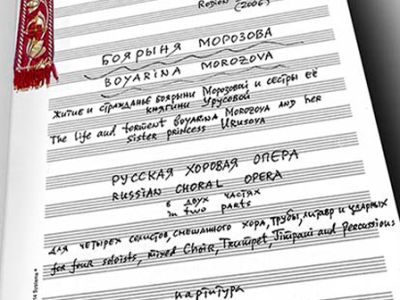 Rodion
(2006)
БОЯРЫНЯ МОРОЗОВА
BOYARINA MOROZOVA
Житие и страданье боярыни Морозовой и сестры её
княгини Урусовой
The Life and torment BOYARINA MOROZOVA AND her
sister princess URUSOVA
РУССКАЯ ХОРОВАЯ ОПЕРА
RUSSIAN CHORAL OPERA
в двух частях
in two parts
для четырех солистов, смешанного хора, трубы, литавр и ударных
for four soloists, mixed Choir, Trumpet, Timpani and percussions
партитура